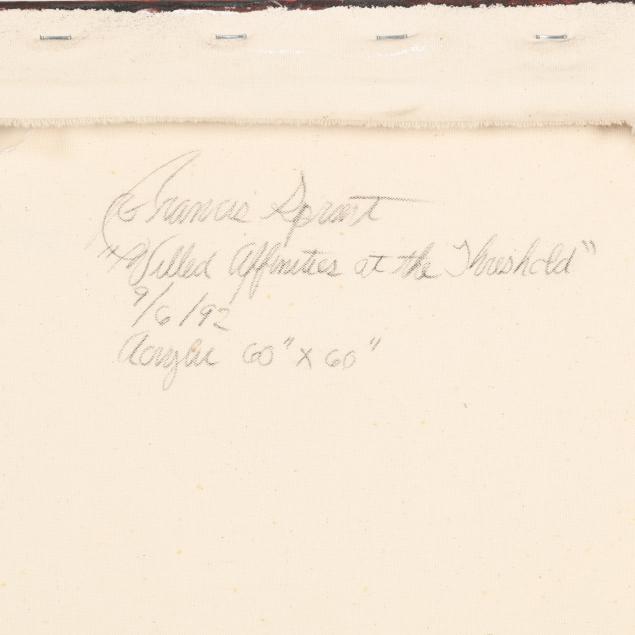 Francis Sprout
"Willed Affinities at the Threshold"
9/6/92
Acrylic 60" x 60"